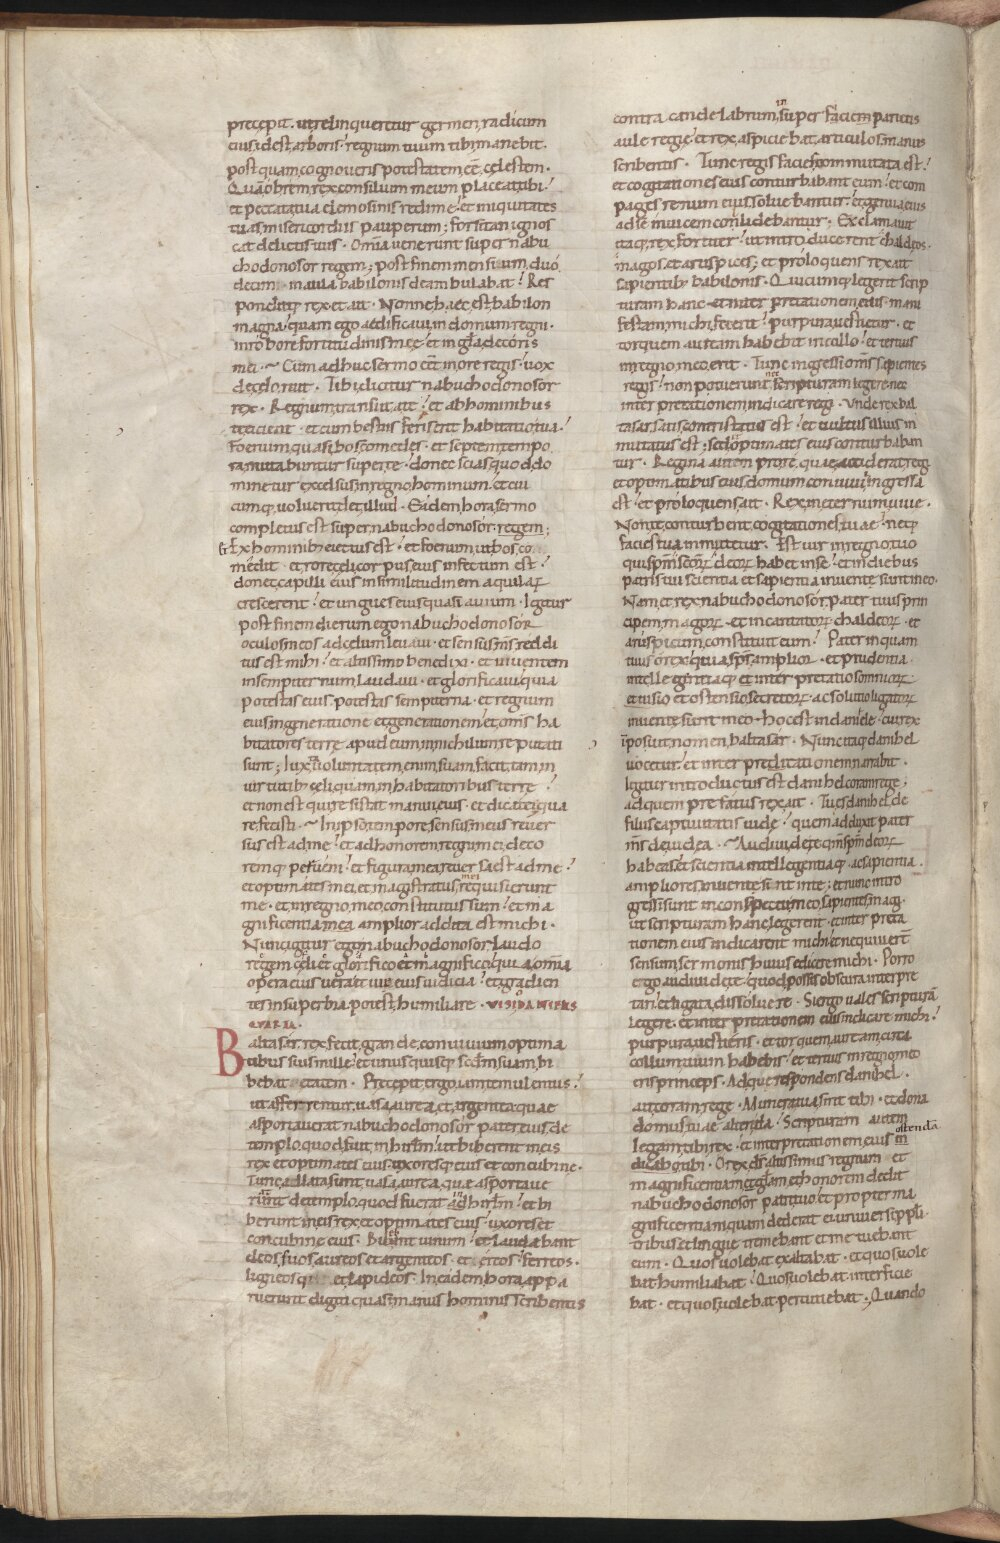 precepit. ut relinqueretur germen radicum
eius. id est arboris. regnum tuum tibi manebit.
post quam cognoveris potestatem eē celestem.
Quāobrem rex consilium meum placeat tibi.
et peccata tua elemosinis redime. et iniquitates
tuas misericordiis pauperum; forsitan ignos
cat delictis tuis. Omīa venerunt super nabu
chodonosor regem; post finem mensium duo
decim in aula babilonis deambulabat. Res
ponditq; rex et ait. Nonne haec est babilon
magna. quam ego aedificavi in domum regni.
in robore fortitudinis meę. et in glā decoris
mei. Cum adhuc sermo eēt in ore regis. vox
de celo ruit. Tibi dicitur nabuchodonosor
rex. Regnum transivit a te. et ab hominibus
te eicient. et cum bestiis feris erit habitatio tua.
Foenum quasi bos comedes. et septem tempo
ra mutabuntur super te. donec scias quod do
minetur excelsus in regno hominum. et cui
cumq; voluerit det illud. Eadem hora sermo
completus est super nabuchodonosor regem;
Ex hominib; eiectus est. et foenum ut bos co
medit. et rore celi corpus eius infectum est.
donec capilli eius in similitudinem aquilarꝝ
crescerent. et ungues eius quasi avium. Igitur
post finem dierum ego nabuchodonosor
oculos meos ad celum levavi. et sensus ms̄ reddi
tus est mihi. et altissimo benedixi. et viventem
in sempiternum laudavi. et glorificavi quia
potestas eius. potestas sempiterna. et regnum
eius in generatione et generationem. et oms̄ ha
bitatores terrę apud eum in nichilum reputati
sunt; Iuxta voluntatem enim suam facit. tam in
virtutib; celi quam in habitatoribus terrę
et non est qui resistat manui eius. et dicat ei qua
re fecisti. In ipso tempore sensus meus rever
sus est ad me. et ad honorem regni mei. deco
remq; perveni. et figura mea reversa est ad me.
et optimates mei et magistratus mei requisierunt
me. et in regno meo constitutus sum. et ma
gnificentia mea amplior addita est michi.
Nunc igitur ego nabuchodonosor. laudo
regem celi et glorifico et magnifico. quia omīa
opera eius vera et vię eius iudicia. et gradien
tes in superbia potest humiliare. VISIO DANIELIS
QVARTA.
Baltasar rex fecit grande convivium optima
tibus suis mille. et unusquisq; scdm̄ suam bi
bebat etatem. Precepit ergo iam temulentus.
ut afferrentur vasa aurea et argentea. quae
asportaverat nabuchodonosor pater eius de
templo. quod fuit in hirlm̄. ut biberent in eis
rex et optimates eius. uxoresq; eius et concubine.
Tunc allata sunt vasa aurea. quae asportave
runt de templo. quod fuerat in hirlm̄. et bi
berunt in eis rex et optimates eius. uxores et
concubine eius. Bibunt vinum. et laudabant
deos suos aureos et argenteos. et ereos. ferreos.
ligneosq; et lapideos. In eadem hora appa
ruerunt digiti quasi manus hominis scribentis
contra candelabrum. in superfaciem parietis
aule regię. et rex aspiciebat articulos manus
scribentis. Tunc regis facies commutata est.
et cogitationes eius conturbabant eum. et com
pages renum eius solvebantur. et genua eius
ad se invicem conlidebantur; Exclamavit
itaq; rex fortiter. ut introducerent chaldeos.
magos. et aruspices; et proloquens rex ait
sapientib; babilonis. Quicumq; legerit scrip
turam hanc et interpretationem eius mani
festam michi fecerit. purpura vestietur. et
torquem auream habebit in collo. et tertius
in regno meo erit. Tunc ingressi oms̄ sapientes
regis. non potuerunt nec scripturam legere. nec
interpretationem indicare regi. Unde rex bal
tasar satis contristatus est. et vultus illius in
mutatus est; sed et optimates eius conturbaban
tur. Regina autem pro re quae acciderat regi
et optimatibus eius. domum convivii ingressa
est. et proloquens ait. Rex in eternum vive.
Non te conturbent cogitationes tuae. neq;
facies tua immutetur. Est vir in regno tuo
qui spm̄ scōrꝝ deorꝝ habet in se. et in diebus
patris tui scientia et sapientia invente sunt in eo.
Nam et rex nabuchodonosor pater tuus prin
cipem magorꝝ et incantatorꝝ chaldeorꝝ. et
aruspicum constituit eum. Pater inquam
tuus o rex; quia sps̄ amplior. et prudentia.
intellegentiaq; et interpretatio somniorꝝ
et visio et ostensio secretorꝝ. ac solutio ligatorꝝ
invente sunt in eo. hoc est in daniele. cui rex
imposuit nomen baltasar. Nunc itaq; danihel
vocetur. et interpretationem narrabit.
Igitur introductus est danihel coram rege;
ad quem prefatus rex ait. Tu es danihel de
filiis captivitatis iudę. quem adduxit pater
ms̄ de iudea. Audivi de te qm̄ spm̄ deorꝝ
habeas. et scientia intellegentiaq; ac sapientia.
ampliores invente sint in te; et nunc intro
gressi sunt in conspectu meo sapientes magi.
ut scripturam hanc legerent. et interpreta
tionem eius indicarent michi. et nequiverūt
sensum sermonis huius edicere michi. Porro
ego audivi de te. quod possis obscura interpre
tari. et ligata dissolvere. Si ergo vales scripturā
legere. et interpretationem eius indicare michi.
purpura vestieris. et torquem auream circa
collum tuum habebis. et tertius in regno meo
eris princeps. Ad que respondens danihel.
ait coram rege. Munera tua sint tibi. et dona
domus tuae alteri da. Scripturam autem
legam tibi rex. et interpretationem eius ostendā
dicabo tibi. O rex ds̄ altissimus regnum et
magnificentiam et glām et honorem dedit
nabuchodonosor patri tuo. et propter ma
gnificentiam quam dederat ei. universi ppli.
tribus et lingue tremebant et metuebant
eum. Quos volebat exaltabat. et quos vole
bat humiliabat. Quos volebat interficie
bat. et quos volebat percutiebat; Quando